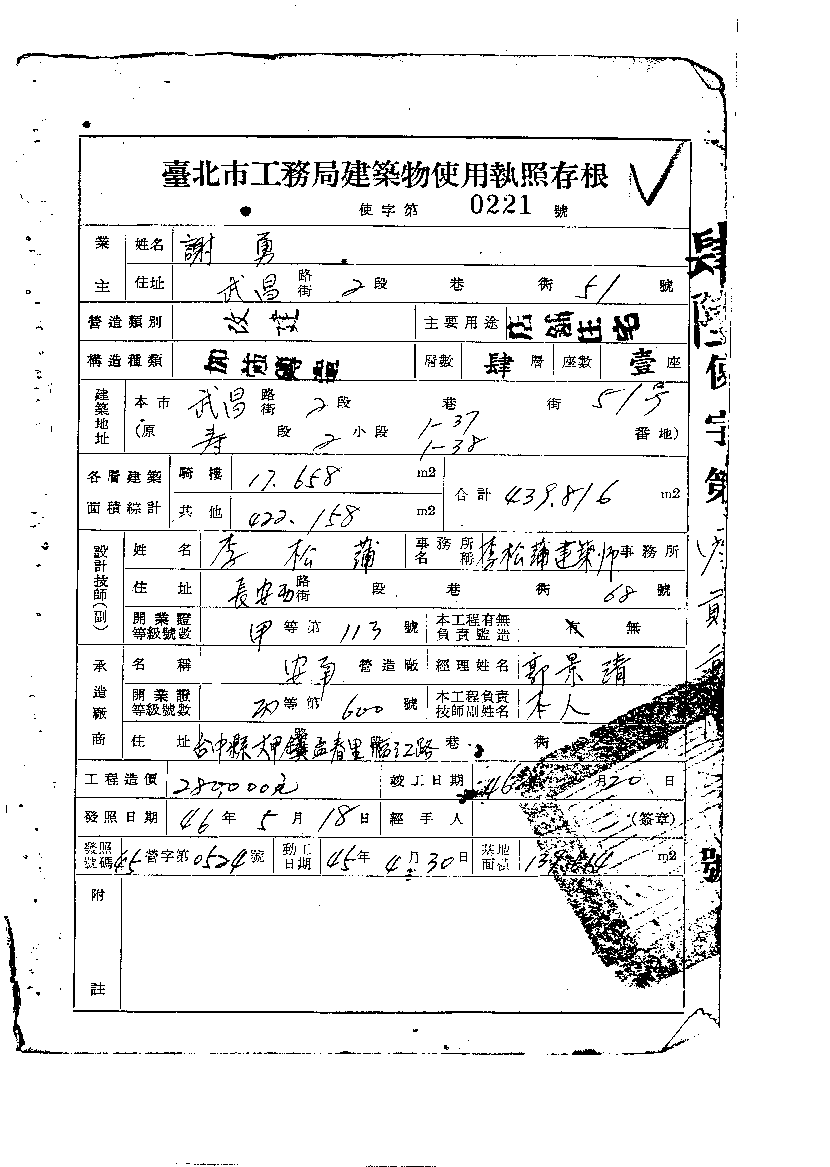 臺北市工務局建築物使用執照存根
使字第 0221 號
業主 姓名 謝勇
住址 武昌路街 2段 巷 衖 51 號
營造類別 改建 主要用途 店舖住宅
構造種類 加強磚造 層數 肆層 座數 壹座
建築地址 本市 武昌路街 2段 巷 衖 51号
(原 寿 段 2 小段 1-37 1-38 番地)
各層建築面積綜計 騎樓 17.658 m2 合計 439.816 m2
其他 422.158 m2
設計技師(副) 姓名 李松蒲 事務所名稱 李松蒲建築师事務所
住址 長安西路街 段 巷 衖 68 號
開業證等級號數 甲等第 113 號 本工程有無負責監造 有 無
承造廠商 名稱 營造廠 經理姓名 郭景
開業證等級號數 丙等第 600 號 本工程負責技師副姓名 本人
住址 台中縣大甲鎮孟春里 江路 巷 衖 號
工程造價 280,000元 竣工日期 46 月20日
發照日期 46年5月18日 經手人 (簽章)
發照號碼 45營字第0524號 動工日期 45年4月30日 基地面積 m2
附註
肆陸使字第 貳 號